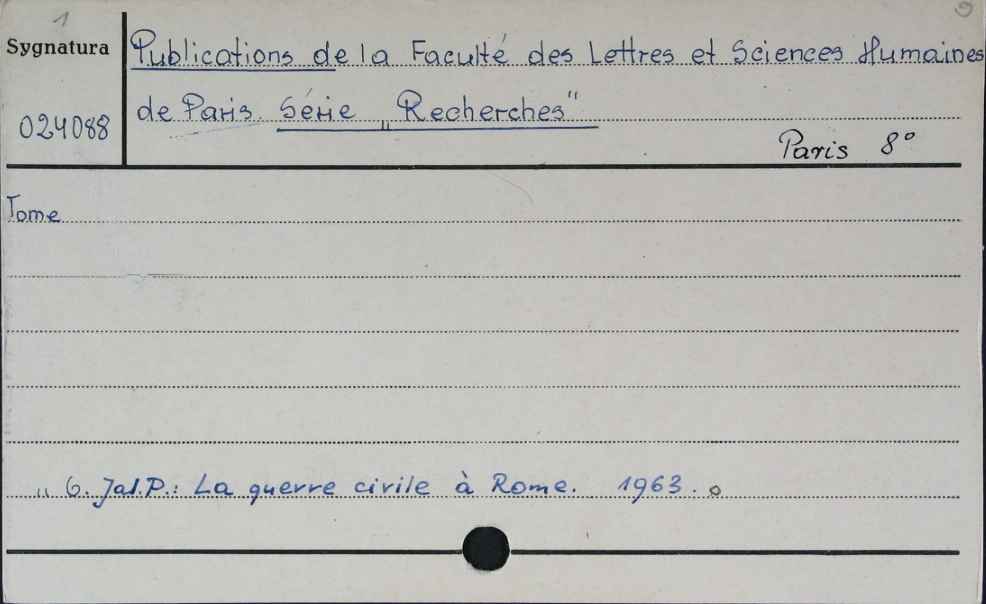 1
9
Sygnatura
024088
Publications de la Faculté des Lettres et Sciences Humaines
de Paris. Série „Recherches"
Paris 8°
Tome
„ 6. Jal.P.: La guerre civile à Rome. 1963. o